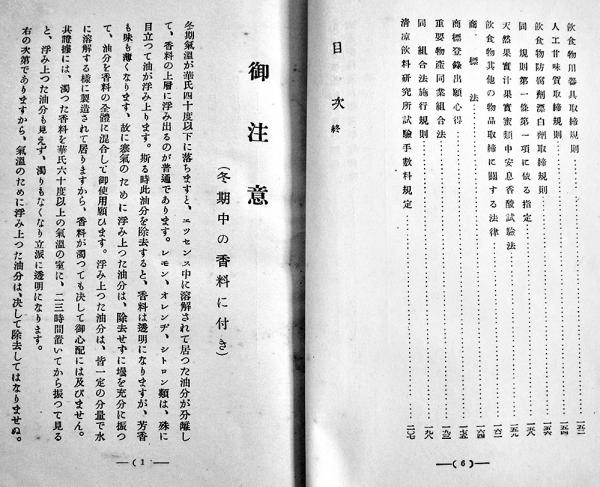 飲食物用器具取締規則……一五二
人工甘味質取締規則……一五四
飲食物防腐劑漂白劑取締規則……一五六
同 規則第一條第一項に依る指定……一五八
天然果實汁果實蜜類中安息香酸試驗法……一五九
飲食物其他の物品取締に關する法律……一六二
商標法……一六四
商標登錄出願心得……一七五
重要物產同業組合法……一九三
同 組合法施行規則……一九八
淸凉飮料硏究所試驗手數料規定……二〇七
目次 終
―(6)―
御注意
(冬期中の香料に付き)
冬期氣溫が華氏四十度以下に落ちますと、エツセンス中に溶解されて居つた油分が分離し
て、香料の上層に浮み出るのが普通であります。レモン、オレンヂ、シトロン類は、殊に
目立つて油が浮み上ります。斯る時此油分を除去すると、香料は透明になりますが、芳香
も味も薄くなります、故に寒氣のために浮み上つた油分は、除去せずに壜を充分に振つ
て、油分を香料の全體に混合して御使用願ひます。浮み上つた油分は、皆一定の分量で水
に溶解する樣に製造されて居りますから、香料が濁つても決して御心配には及びません。
其證據には、濁つた香料を華氏六十度以上の氣溫の室に、二三時間置いてから振つて見る
と、浮み上つた油分も見えず、濁りもなくなり立派に透明になります。
右の次第でありますから、氣溫のために浮み上つた油分は、決して除去してはなりませぬ。
―(1)―